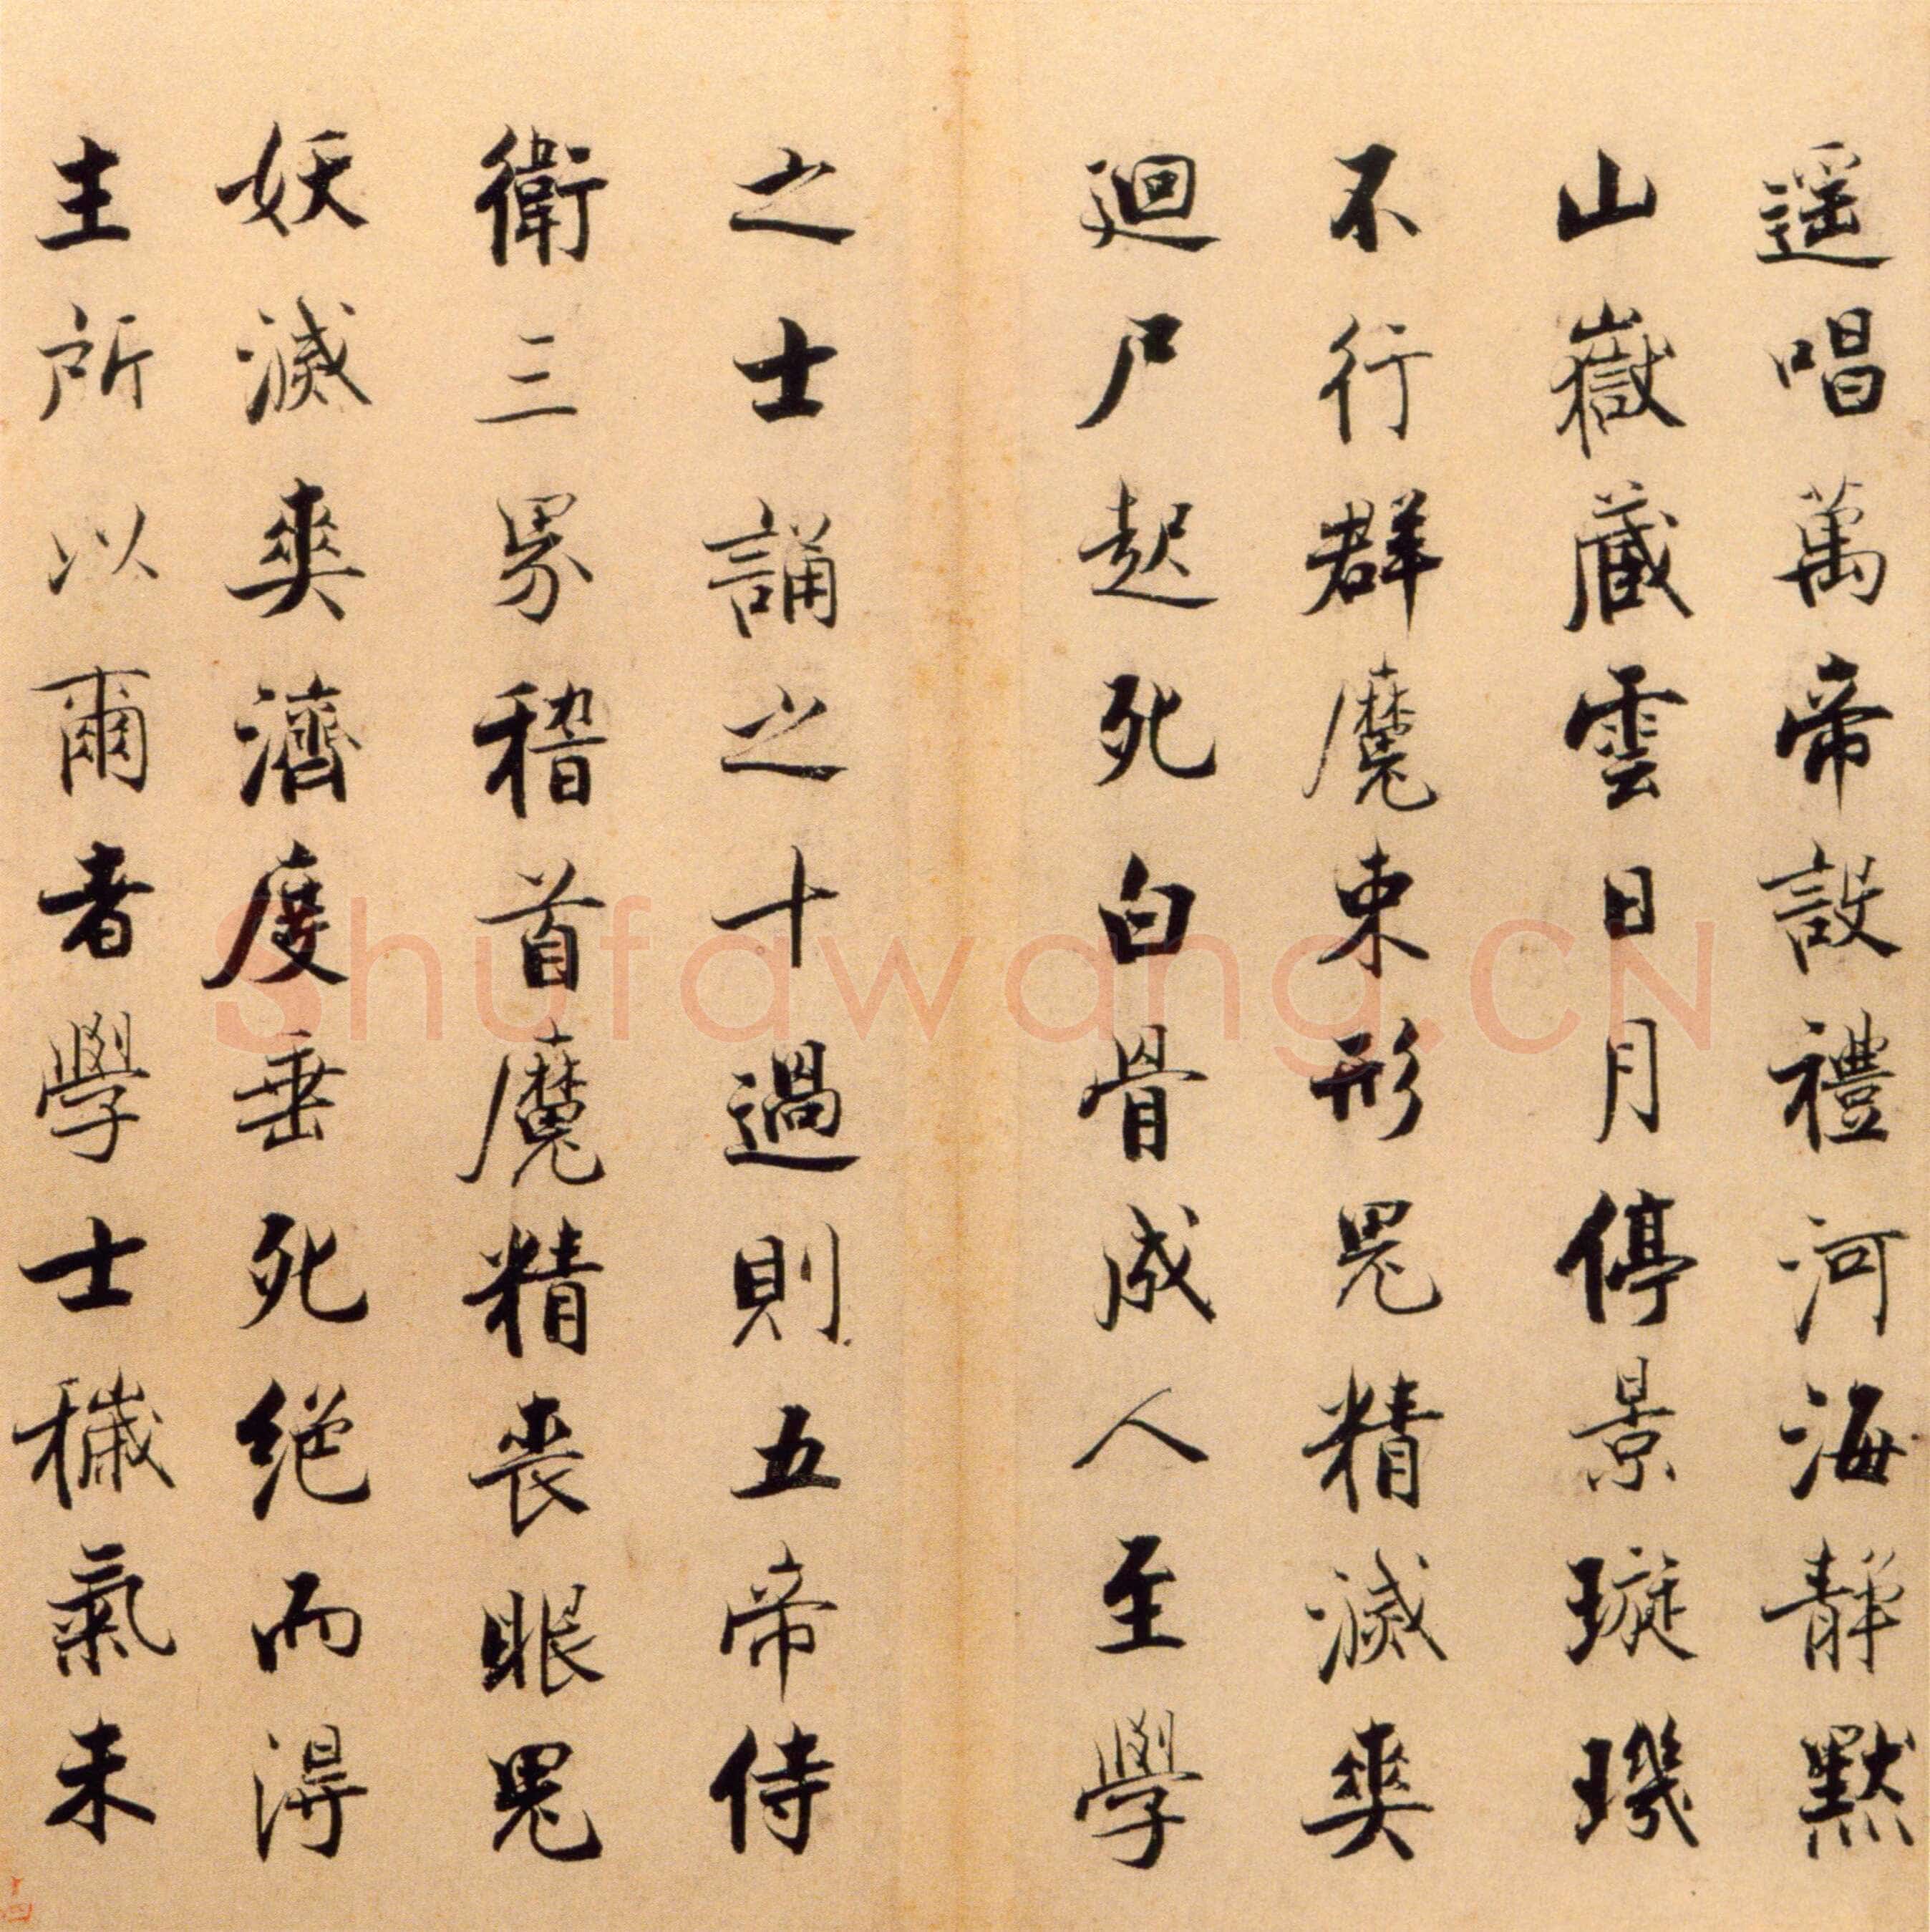 遥唱萬帝設禮河海静默
山嶽藏雲日月停景璇璣
不行群魔束形鬼精滅爽
迴尸起死白骨成人至學
之士誦之十過則五帝侍
衛三界稽首魔精喪眼鬼
妖滅爽濟度垂死絕而得
生所以爾者學士穢氣未
Shufawang.CN